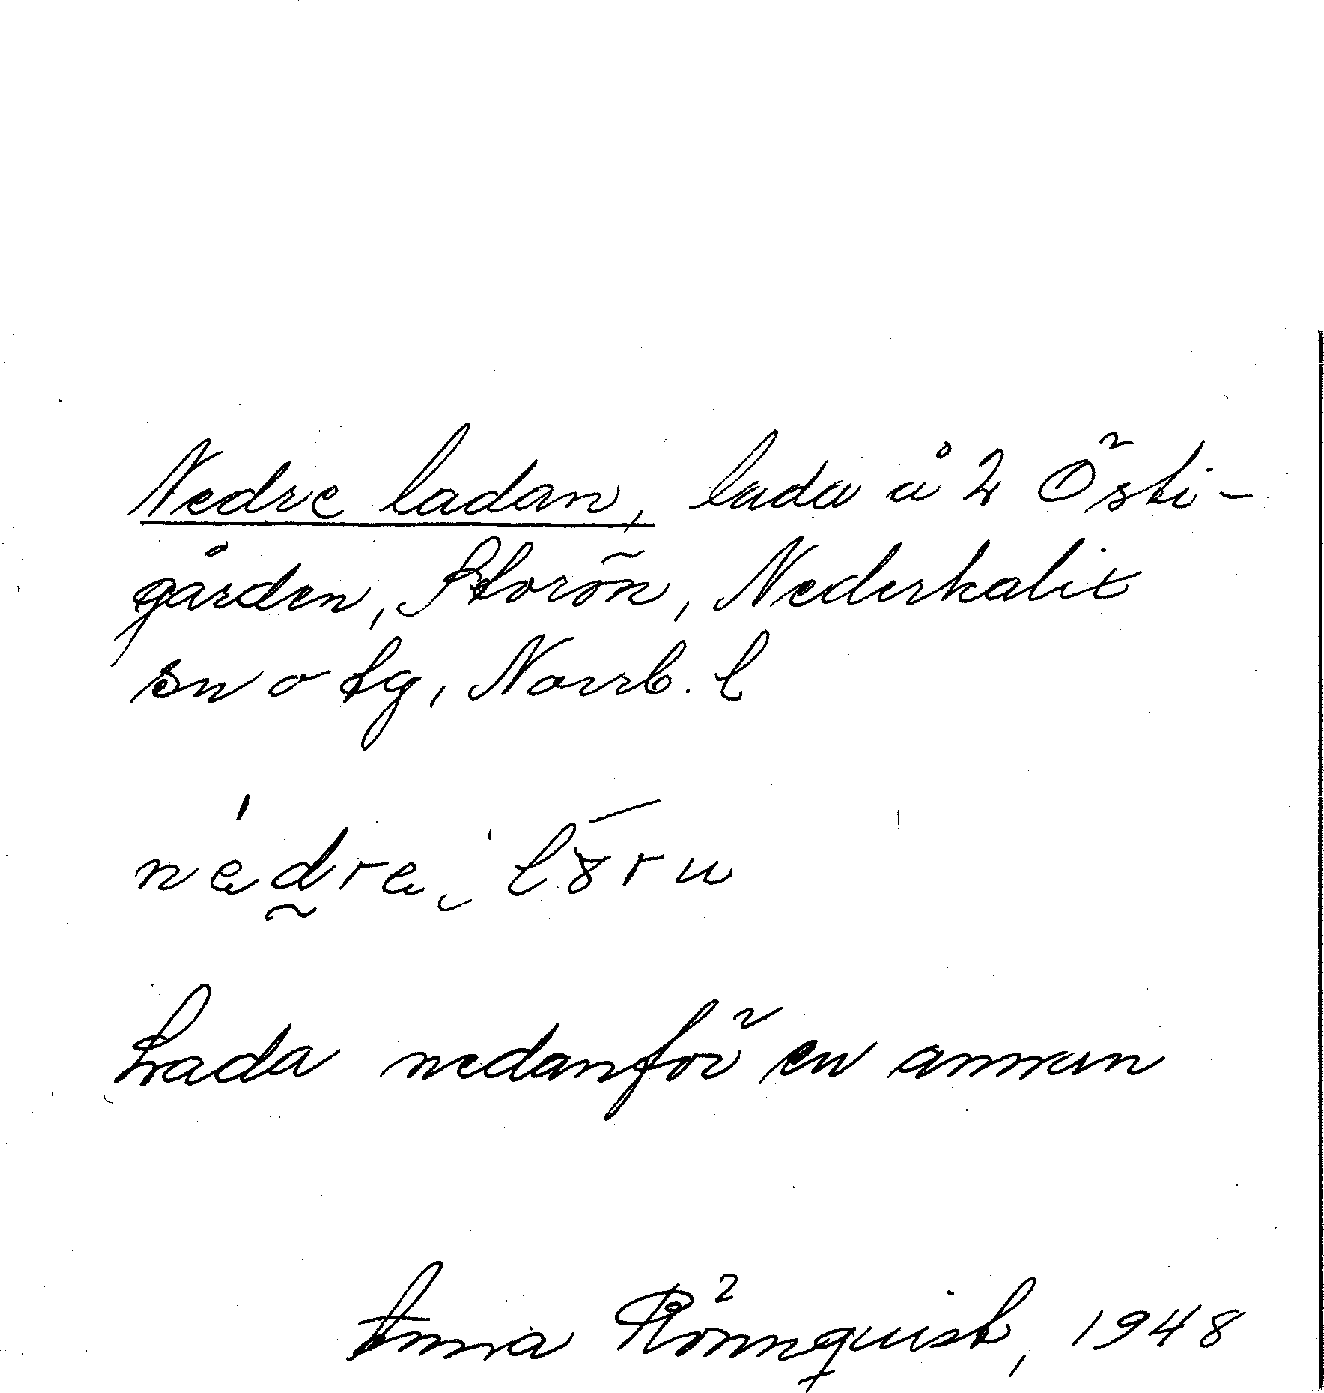 Nedre ladan, lada å 2 Östi-
gården, Storön, Nederkalix
sn o tg, Norrb. l
Lada nedanför en annan
Anna Rönnquist, 1948